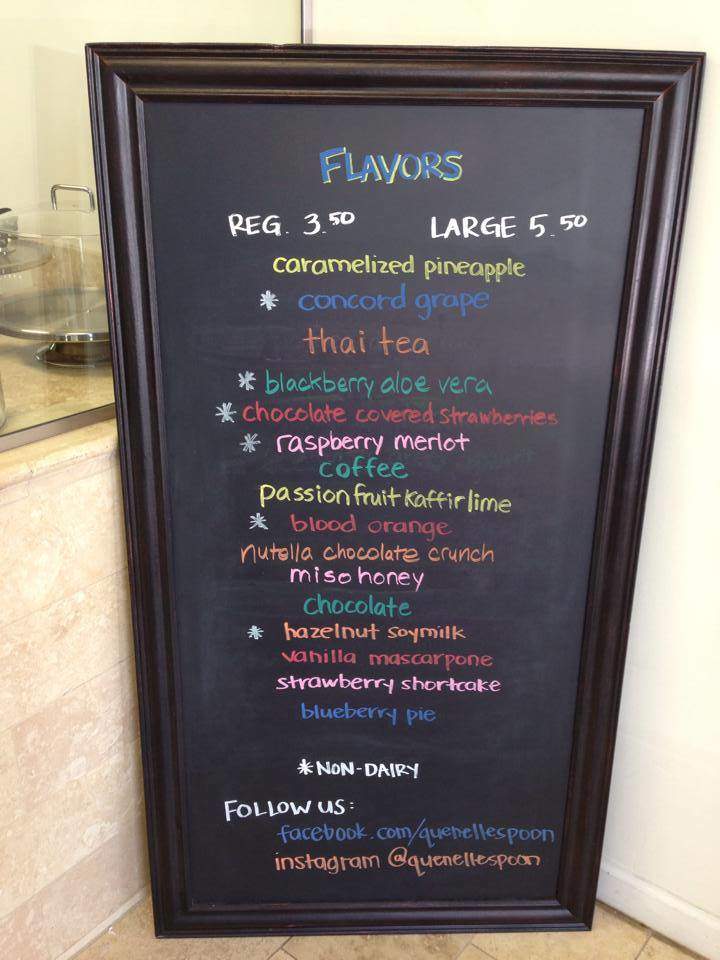 FLAVORS
REG. 3.50 LARGE 5.50
caramelized pineapple
* concord grape
thai tea
* blackberry aloe vera
* chocolate covered strawberries
* raspberry merlot
coffee
passion fruit Kaffir lime
* blood orange
nutella chocolate crunch
miso honey
chocolate
* hazelnut soymilk
vanilla mascarpone
strawberry shortcake
blueberry pie
*NON-DAIRY
FOLLOW US:
facebook.com/quenellespoon
instagram @quenellespoon